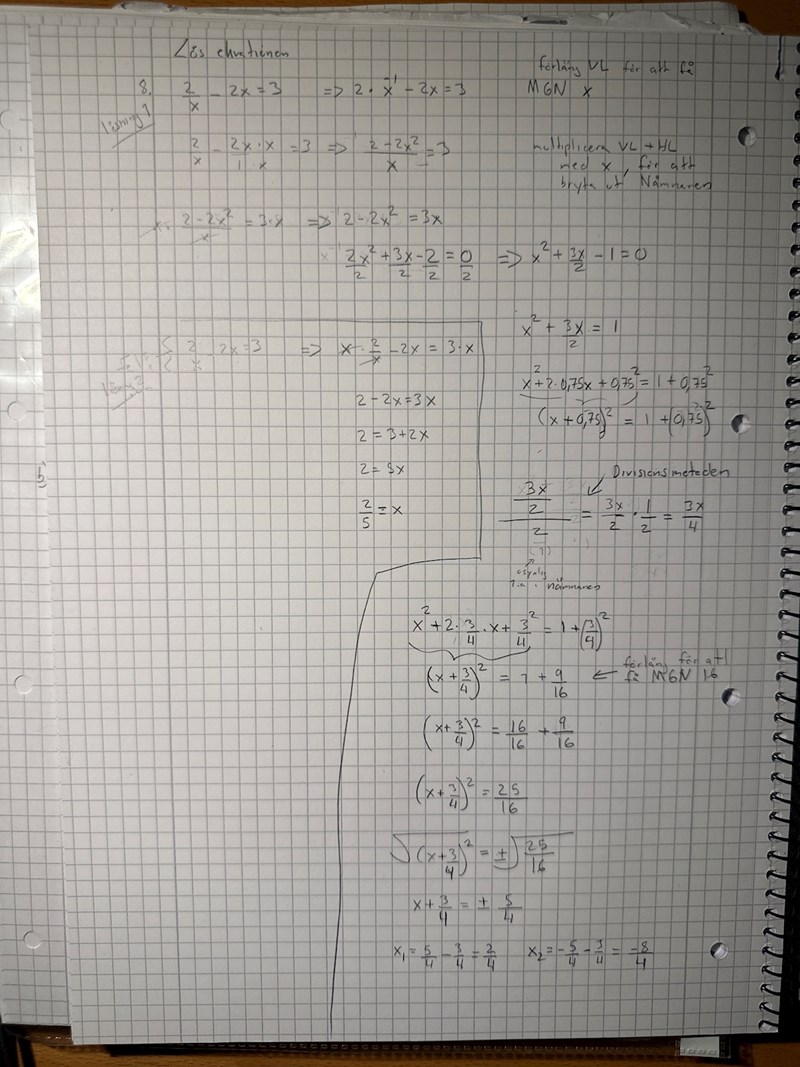 Lös ekvationen
8. 2/x - 2x = 3 => 2 · x^-1 - 2x = 3
förläng VL för att få
MGN x
lösning 1
2/x - 2x·x/1·x = 3 => 2-2x²/x = 3
multiplicera VL + HL
med x, för att
bryta ut Nämnaren
x · 2-2x²/x = 3·x => 2-2x² = 3x
2x²/2 + 3x/2 - 2/2 = 0/2 => x² + 3x/2 - 1 = 0
x² + 3x/2 = 1
x² + 2·0,75x + 0,75² = 1 + 0,75²
(x + 0,75)² = 1 + (0,75)²
2/x - 2x = 3 => x · 2/x - 2x = 3·x
2 - 2x = 3x
2 = 3+2x
2 = 5x
2/5 = x
Divisionsmetoden
3x/2 / 2 = 3x/2 · 1/2 = 3x/4
nämnaren
x² + 2 · 3/4 · x + 3²/4 = 1 + (3/4)²
(x + 3/4)² = 1 + 9/16
förläng för att
få MGN 16
(x + 3/4)² = 16/16 + 9/16
(x + 3/4)² = 25/16
√(x + 3/4)² = ±√25/16
x + 3/4 = ± 5/4
x₁ = 5/4 - 3/4 = 2/4 x₂ = -5/4 - 3/4 = -8/4